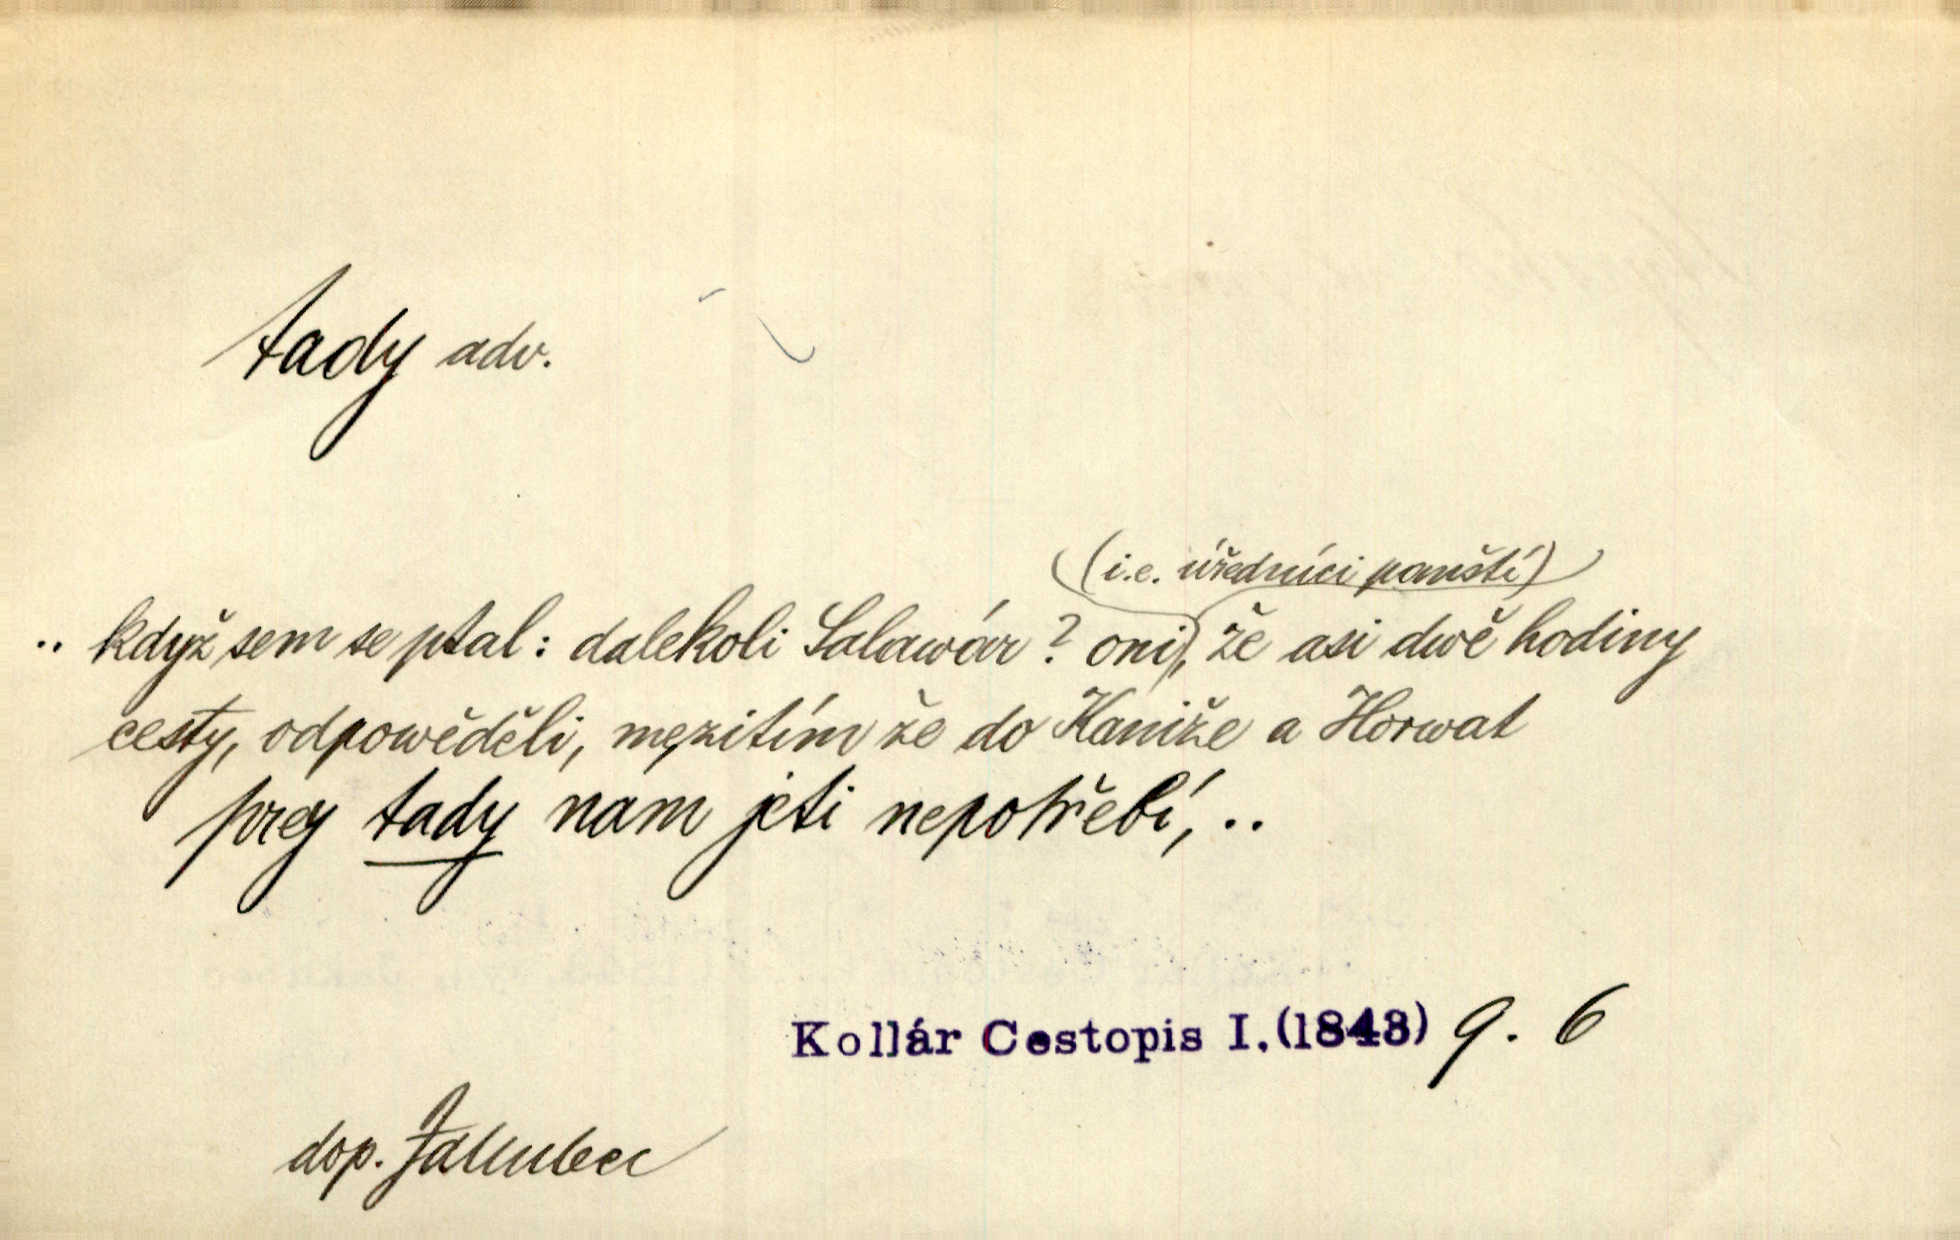 tady adv.
(i.e. úředníci panští)
.. když sem se ptal: dalekoli Salawár? oni, že asi dwě hodiny
cesty, odpowěděli, mezitím že do Kaniže a Horwat
prey tady nam jeti nepotřebí, ..
Kollár Cestopis I.(1843) 9. 6
dop. Jakubec